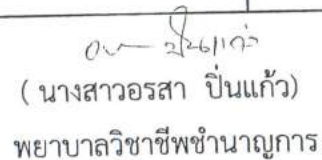 ( นางสาวอรสา ปิ่นแก้ว)
พยาบาลวิชาชีพชำนาญการ